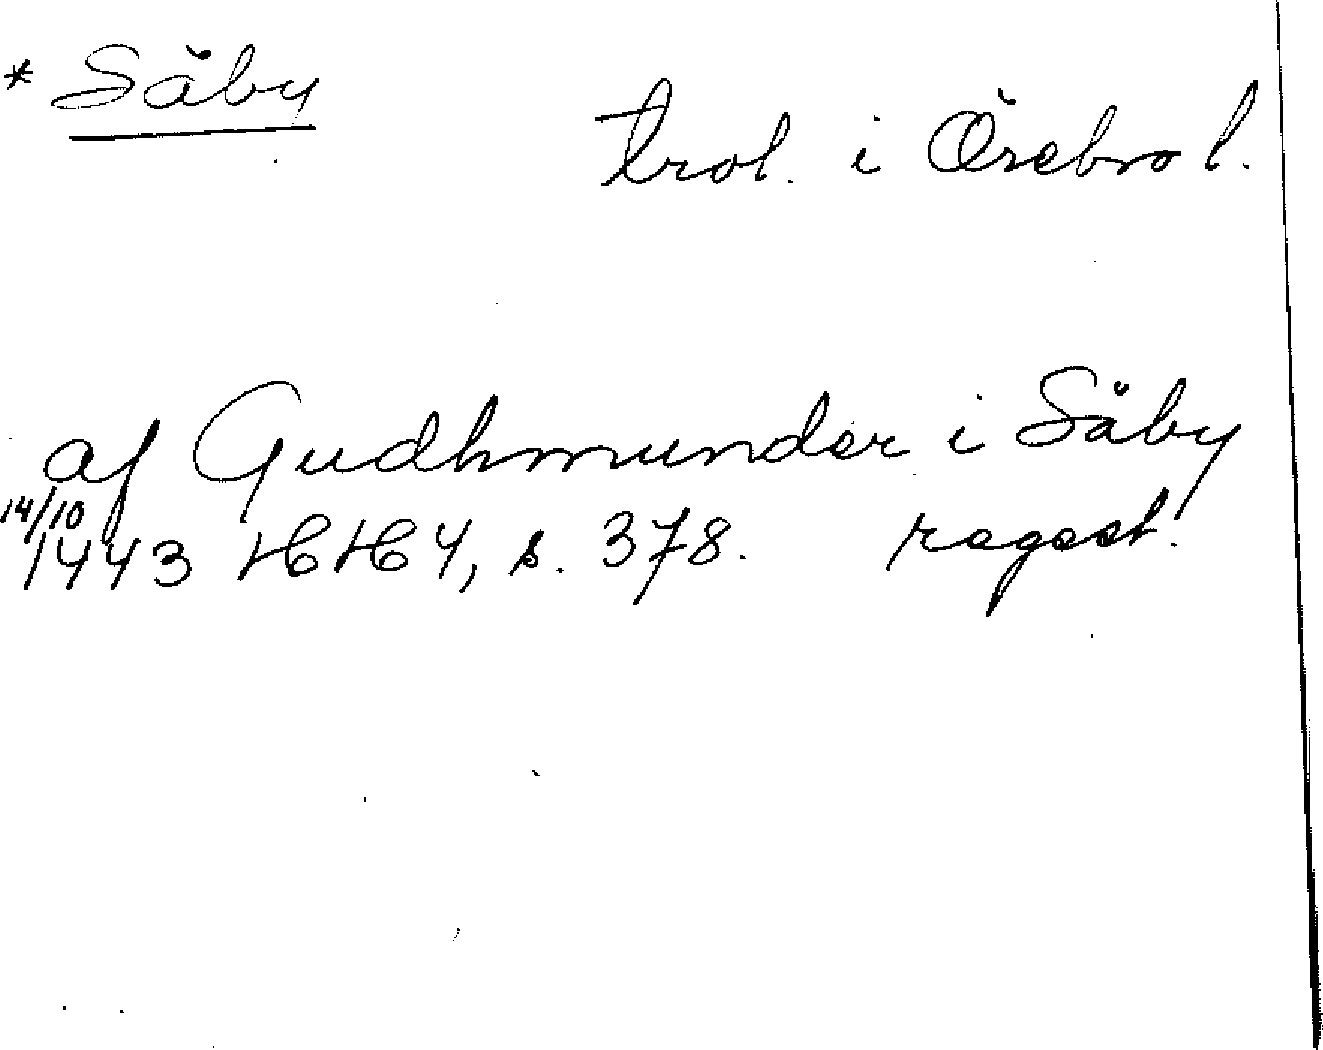 * Säby
trol. i Örebro l.
af Gudhmunder i Säby
14/10 1443 HH 4, s. 378. regest.